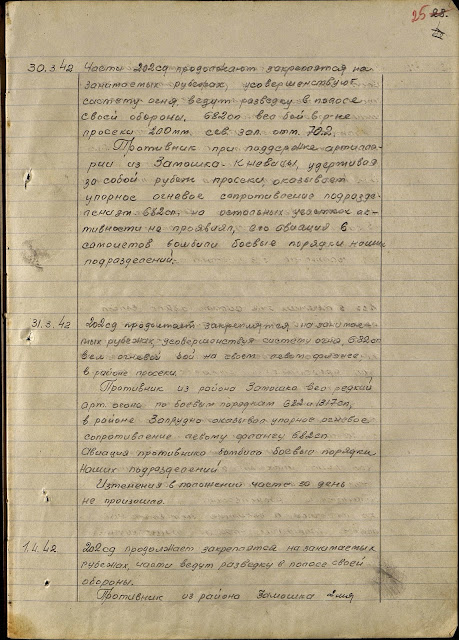 25 28.
30.3.42 Части 202сд продолжают закрепятся на
занимаемых рубежах, усовершенствуют
систему огня, ведут разведку в полосе
своей обороны. 682сп вел бой в р-не
просеки 200мт. сев. зап. отм. 70.2,
Противник при поддержке артилле-
рии из Замошка-Кневицы, удерживая
за собой рубеж просеки, оказывает
упорное огневое сопротивление подразде-
лениям 682сп, на остальных участках ак-
тивности не проявлял, его авиация 6
самолетов бомбили боевые порядки наших
подразделений.
31.3.42 202сд продолжает закреплятся на занимае-
мых рубежах, усовершенствуя систему огня, 682сп
вел огневой бой на своем левом фланге
в районе просеки.
Противник из района Замошка вел редкий
арт. огонь по боевым порядкам 682 и 1317сп,
в районе Запрудно оказывал упорное огневое
сопротивление левому флангу 682сп
Авиация противника бомбила боевые порядки
наших подразделений
Изменений в положений части за день
не произошло.
1.4.42 202сд продолжает закрепятся на занимаемых
рубежах, части ведут разведку в полосе своей
обороны.
Противник из района Замошка 2мя